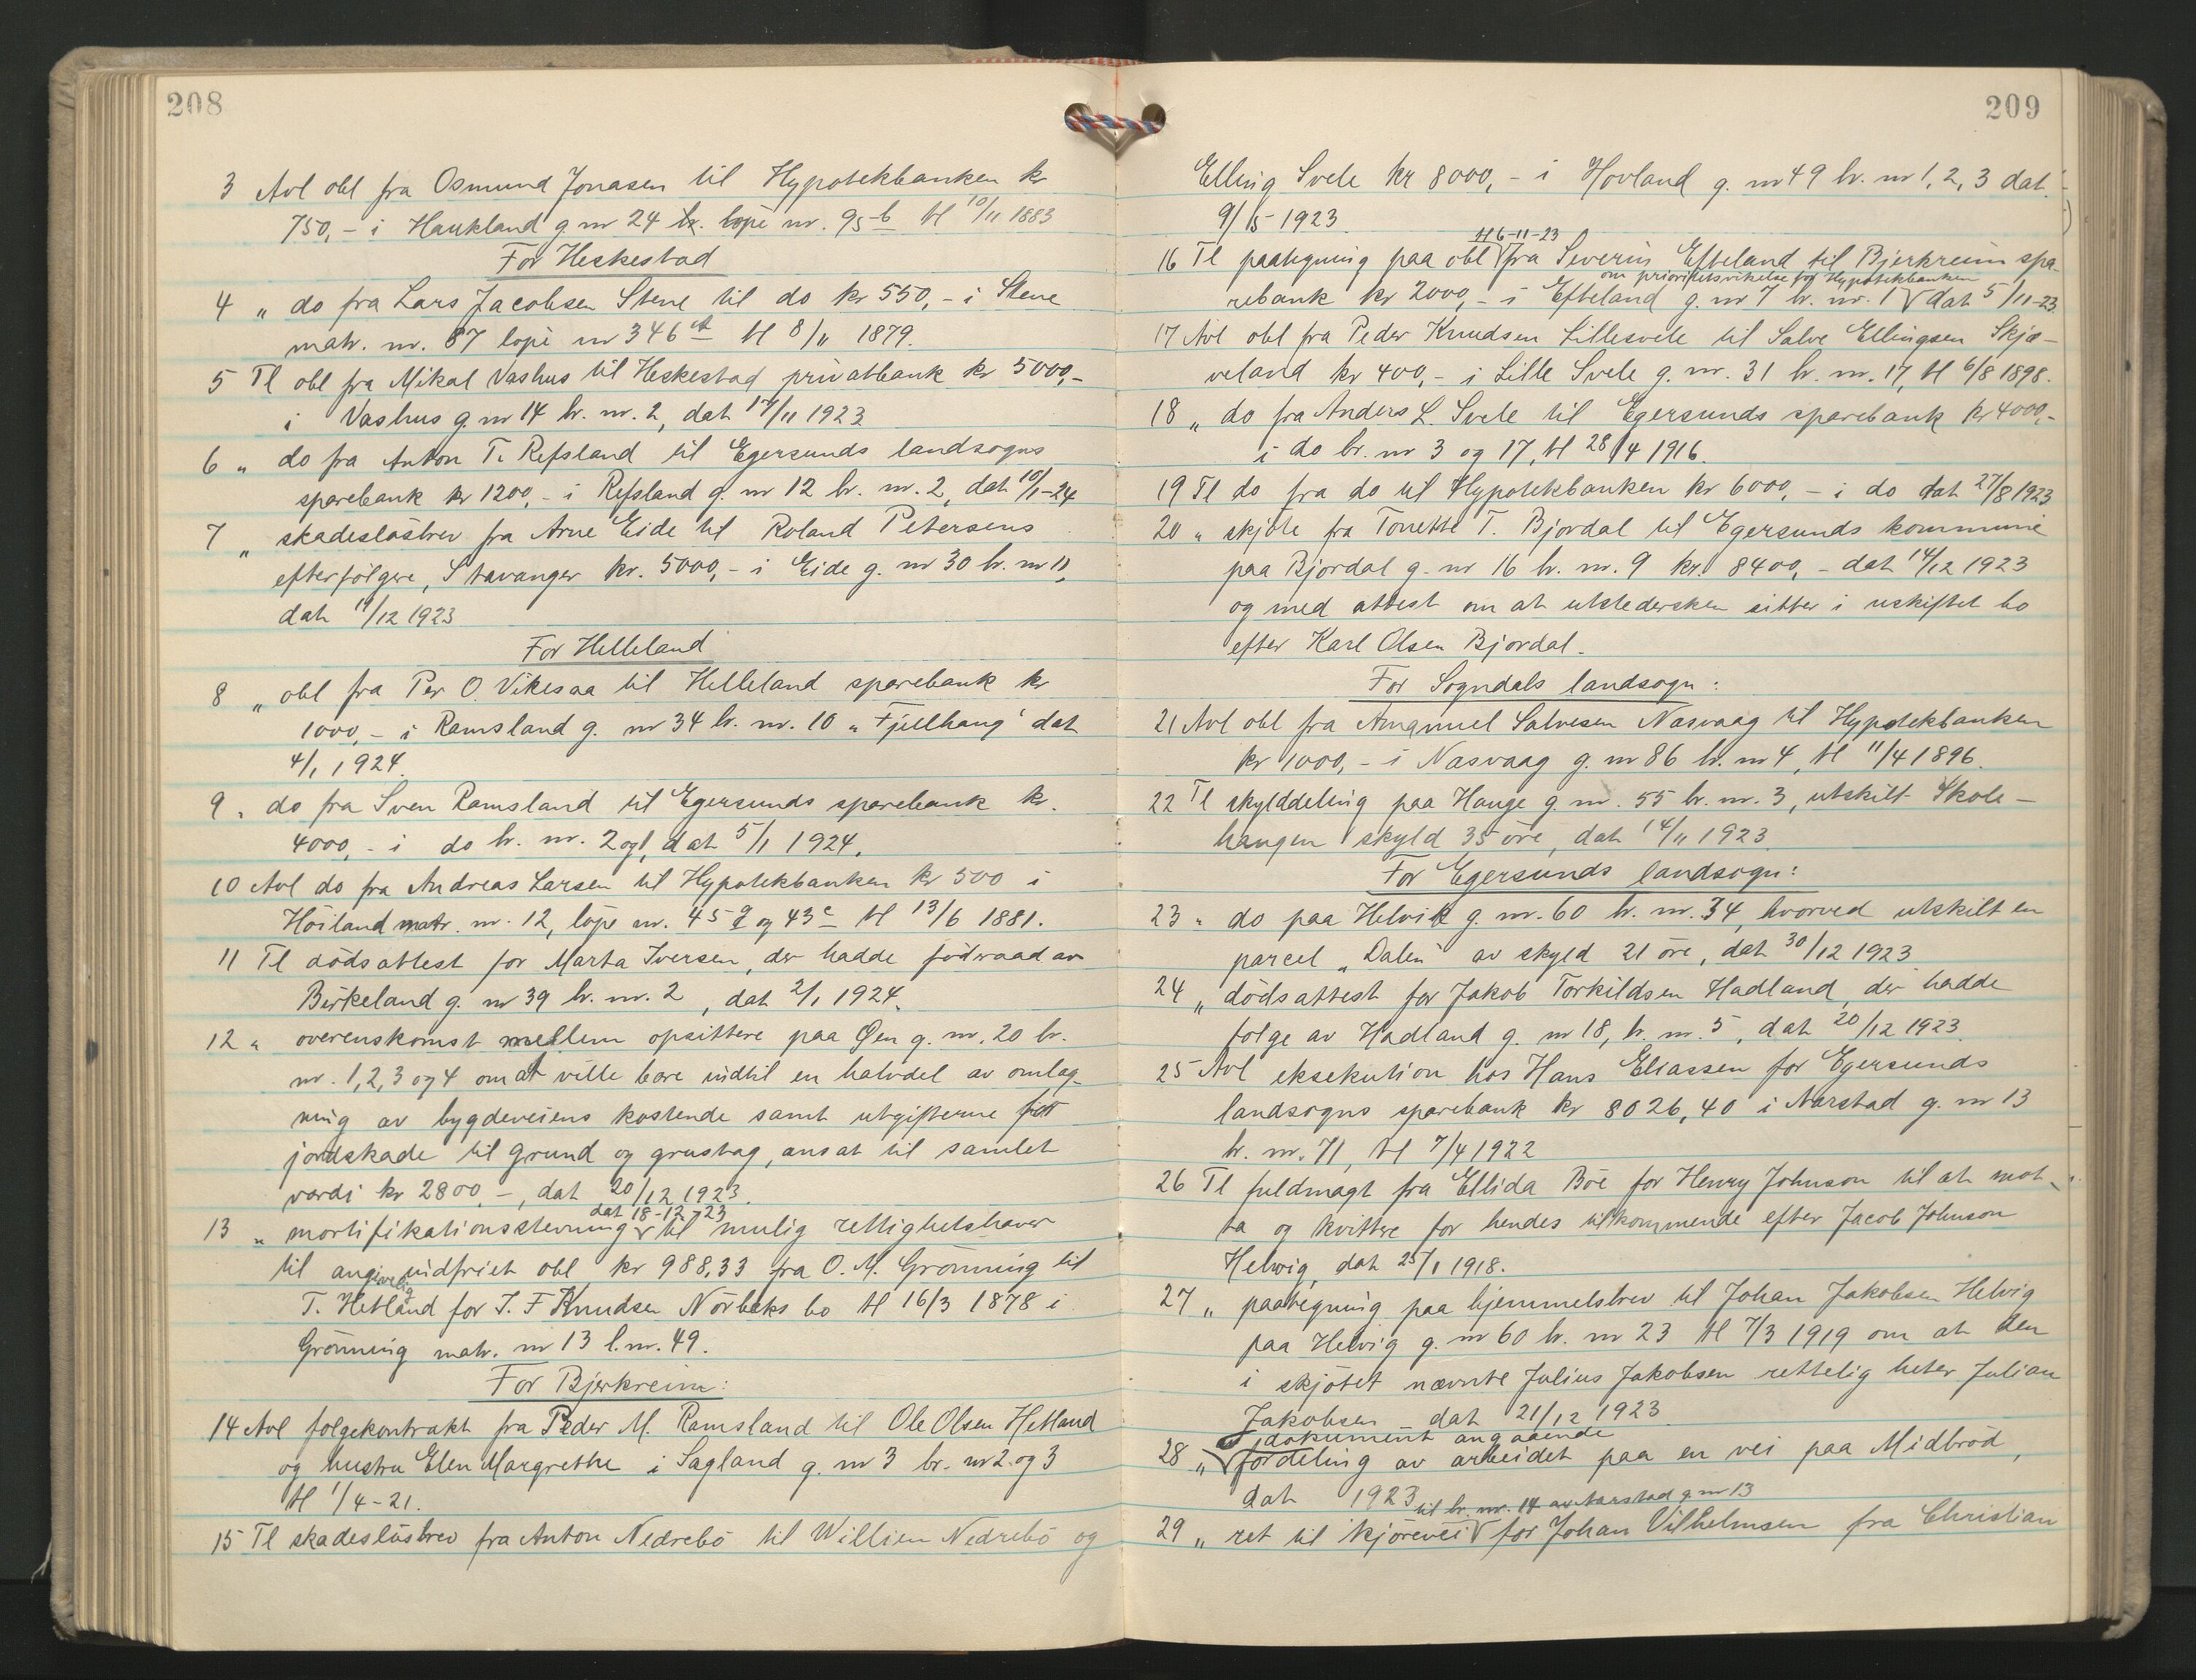 208
3 Avl obl fra Osmund Jonasen til Hypotekbanken kr
750,- i Haukland g nr 24 løpe nr. 95 b tl 10/11 1883
For Heskestad
4 „ do fra Lars Jacobsen Stene til do kr 550,- i Stene
matr. nr. 87 løpe nr 346 a tl 8/11 1879.
5 Tl obl fra Mikal Vashus til Heskestad privatbank kr 5000,-
i Vashus g nr 14 br. nr. 2, dat 17/11 1923
6 „ do fra Anton T. Refsland til Egersunds landsogns
sparebank kr 1200,- i Refsland g. nr 12 br. nr. 2, dat 10/1-24
7 „ skadesløsbrev fra Arne Eide til Roland Petersens
efterfølgere, Stavanger kr. 5000,- i Eide g. nr 30 br. nr 11,
dat 19/12 1923
For Helleland
8 „ obl fra Per O. Vikesaa til Helleland sparebank kr
1000,- i Ramsland g. nr 34 br. nr. 10 „Fjellhang“ dat
4/1 1924.
9 „ do fra Sven Ramsland til Egersunds sparebank kr.
4000,- i do br. nr. 2 og 1, dat 5/1 1924.
10 Avl do fra Andreas Larsen til Hypotekbanken kr 500 i
Höiland matr. nr. 12, løpe nr. 45 g og 43 c tl 13/6 1881.
11 Tl dödsattest for Marta Iversen, der hadde fødraad av
Birkeland g. nr 39 br. nr. 2, dat 2/1 1924.
12 „ overenskomst mellem opsittere paa Øen g. nr. 20 br.
nr. 1, 2, 3 og 4 om at ville bære indtil en halvdel av omlæg-
ning av bygdeveiens kostende samt utgifterne for
jordskade til grund og grustag, ansat til samlet
værdi kr 2800,-, dat 20/12 1923.
dat 18-12-23
13 „ mortifikationsstevning til mulig rettighetshaver
til angivelig indfriet obl kr 988,33 fra O. M. Grönning til
T. Hetland for J. F Knudsen Nörbeks bo tl 16/3 1878 i
Grönning matr. nr 13 l. nr. 49.
For Bjerkreim:
14 Avl følgekontrakt fra Peder M. Ramsland til Ole Olsen Hetland
og hustru Elen Margrethe i Sagland g. nr 3 br. nr 2 og 3
tl 1/4-21.
15 Tl skadesløsbrev fra Anton Nedrebö til Willien Nedrebö og
209
Elling Svele kr 8000,- i Hovland g. nr 49 br. nr 1, 2, 3 dat
9/15-1923.
tl 6-11-23
16 Tl paategning paa obl fra Severin Efteland til Bjerkreim spa-
om prioritetsvikelse for Hypotekbanken
rebank kr 2000,- i Efteland g. nr 7 br. nr. 1 dat 5/11-23.
17 Avl obl fra Peder Knudsen Lillesvele til Salve Ellingsen Skjæ-
veland kr 400,- i Lille Svele g. nr. 31 br. nr. 17, tl 6/8 1898.
18 „ do fra Anders L. Svele til Egersunds sparebank kr 4000,-
i do br. nr 3 og 17, tl 28/4 1916.
19 Tl do fra do til Hypotekbanken kr 6000,- i do dat 27/8 1923
20 „ skjöte fra Tonette T. Bjordal til Egersunds kommune
paa Bjordal g. nr 16 br. nr. 9 kr. 8400,- dat 14/12 1923
og med attest om at utstedersken sitter i uskiftet bo
efter Karl Olsen Bjordal.
For Sogndals landsogn:
21 Avl obl fra Amanuel Salvesen Nasvaag til Hypotekbanken
kr 1000,- i Nasvaag g. nr 86 br. nr 4, tl 11/4 1896.
22 Tl skylddeling paa Hauge g. nr. 55 br. nr. 3, utskilt Skole-
haugen skyld 35 öre, dat 14/11 1923.
For Egersunds landsogn:
23 „ do paa Helvik g. nr. 60 br. nr. 34, hvorved utskilt en
parcel „Dalen“ av skyld 21 öre, dat 30/12 1923
24 „ dödsattest for Jakob Torkildsen Hadland, der hadde
følge av Hadland g. nr 18, br. nr. 5, dat 20/12 1923.
25 Avl eksekution hos Hans Eliassen for Egersunds
landsogns sparebank kr 8026,40 i Narstad g. nr 13
br. nr. 71, tl 7/4 1922
26 Tl fuldmagt fra Ellida Böe for Henry Johnson til at mot-
ta og kvittere for hendes tilkommende efter Jacob Johnson
Helwig, dat 25/1 1918.
27 „ paategning paa hjemmelsbrev til Johan Jakobsen Helvig
paa Helvig g. nr 60 br. nr 23 tl 7/3 1919 om at den
i skjötet nævnte Julius Jakobsen rettelig heter Julian
Jakobsen dat 21/12 1923.
dokument angaaende
28 „ fordeling av arbeidet paa en vei paa Midbröd,
dat 1923
til br. nr. 14 av Narstad g nr 13
29 „ ret til kjörevei for Johan Vilhelmsen fra Christian